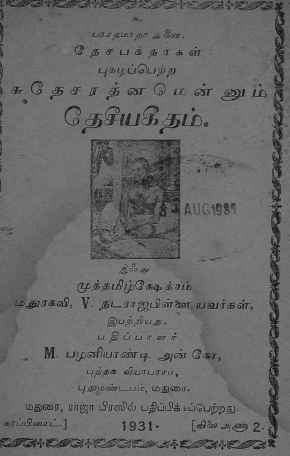 உ
பாரதமாதா துணை.
தேசபக்தர்கள்
புகழ்ப்பெற்ற
சுதேசரத்னமென்னும்
தேசியகீதம்.
AUG 1931
இஃது
முத்தமிழ்க்ஷேக்ரம்
மதுரகவி, V. நடராஜபிள்ளை யவர்கள்,
இயற்றியது.
பதிப்பாளர்
M. பழனியாண்டி அன் கோ,
புத்தக வியாபாரம்,
புதுமண்டபம், மதுரை.
மதுரை, ராஜா பிரஸில் பதிப்பிக்கப்பெற்றது.
காப்பிரைட்.] 1931. [விலை அணா 2.